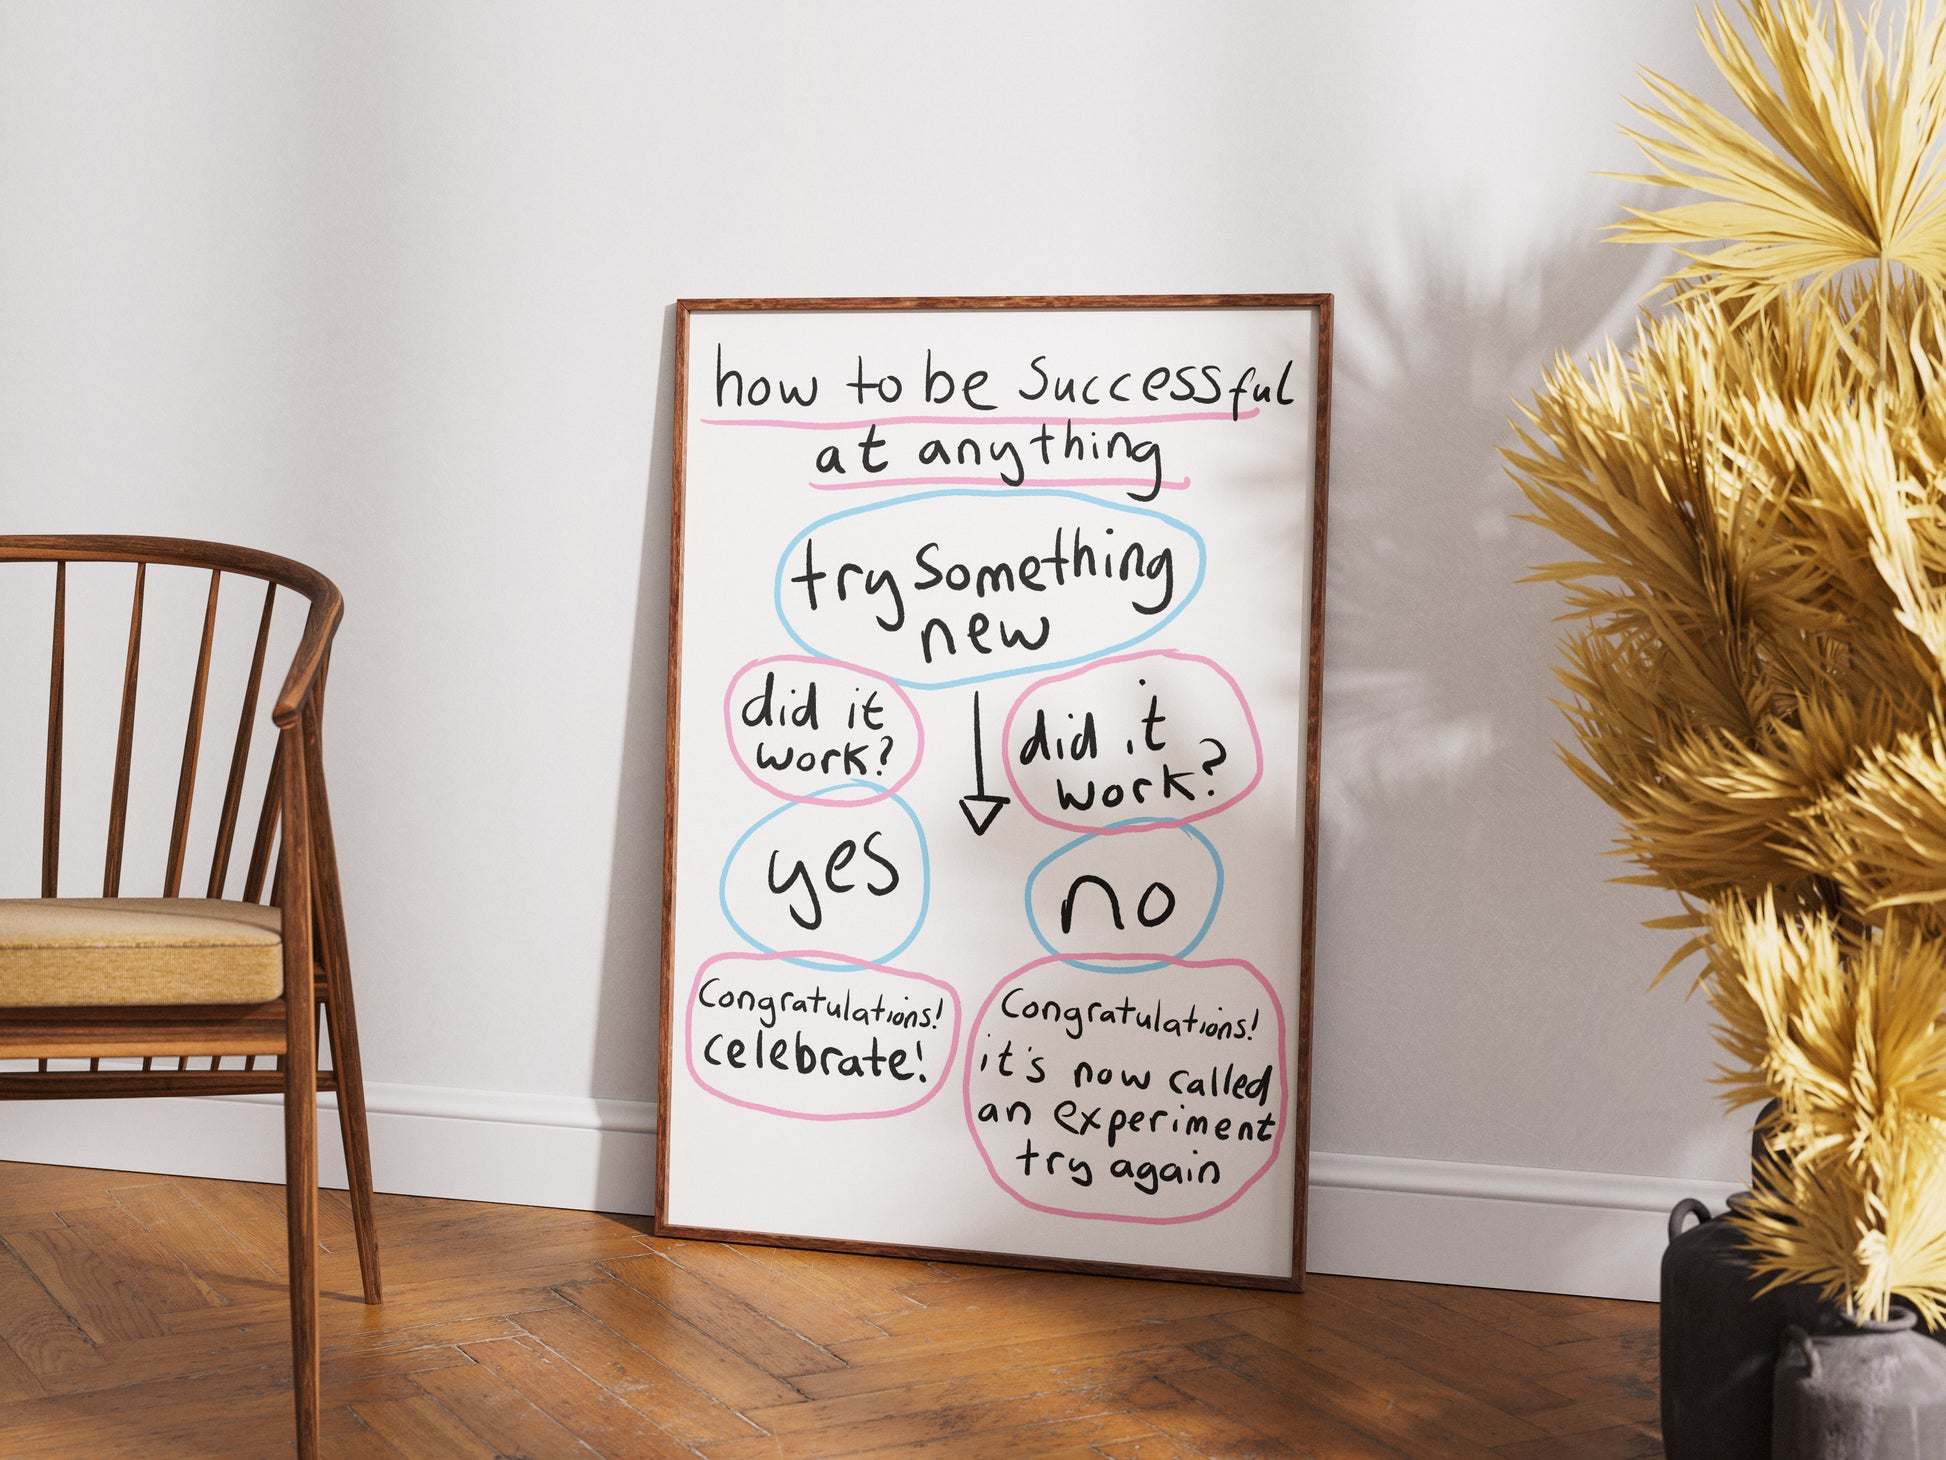 how to be successful
at anything
try something
new
did it
work?
yes
Congratulations!
celebrate!
did it
work?
no
Congratulations!
it's now called
an experiment
try again